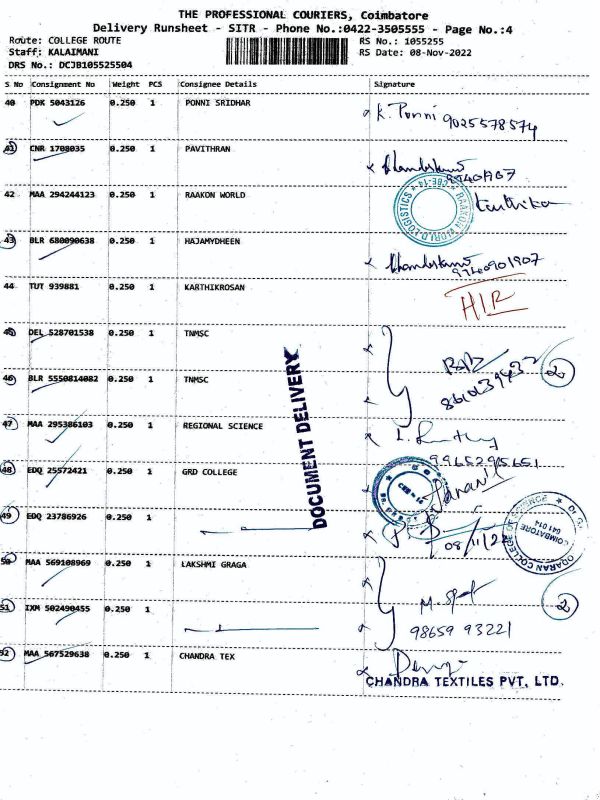 THE PROFESSIONAL COURIERS, Coimbatore
Delivery Runsheet - SITR - Phone No.:0422-3505555 - Page No.:4
Route: COLLEGE ROUTE RS No.: 1055255
Staff: KALAIMANI RS Date: 08-Nov-2022
DRS No.: DCJB105525504
S No Consignment No Weight PCS Consignee Details Signature
40 PDK 5043126 0.250 1 PONNI SRIDHAR K. Ponni 9025578574
41 CNR 1708035 0.250 1 PAVITHRAN
42 MAA 294244123 0.250 1 RAAKON WORLD Karthika
43 BLR 680090638 0.250 1 HAJAMYDHEEN 9940901907
44 TUT 939881 0.250 1 KARTHIKROSAN
45 DEL 528701538 0.250 1 TNMSC
46 BLR 5550814082 0.250 1 TNMSC 2
47 MAA 295386103 0.250 1 REGIONAL SCIENCE
9965295651
48 EDQ 25572421 0.250 1 GRD COLLEGE
49 EDQ 23786926 0.250 1 08/11/22
COIMBATORE
641 014
50 MAA 569108969 0.250 1 LAKSHMI GRAGA
51 IXM 502490455 0.250 1 98659 93221 2
52 MAA 567529638 0.250 1 CHANDRA TEX
CHANDRA TEXTILES PVT. LTD.
DOCUMENT DELIVERY